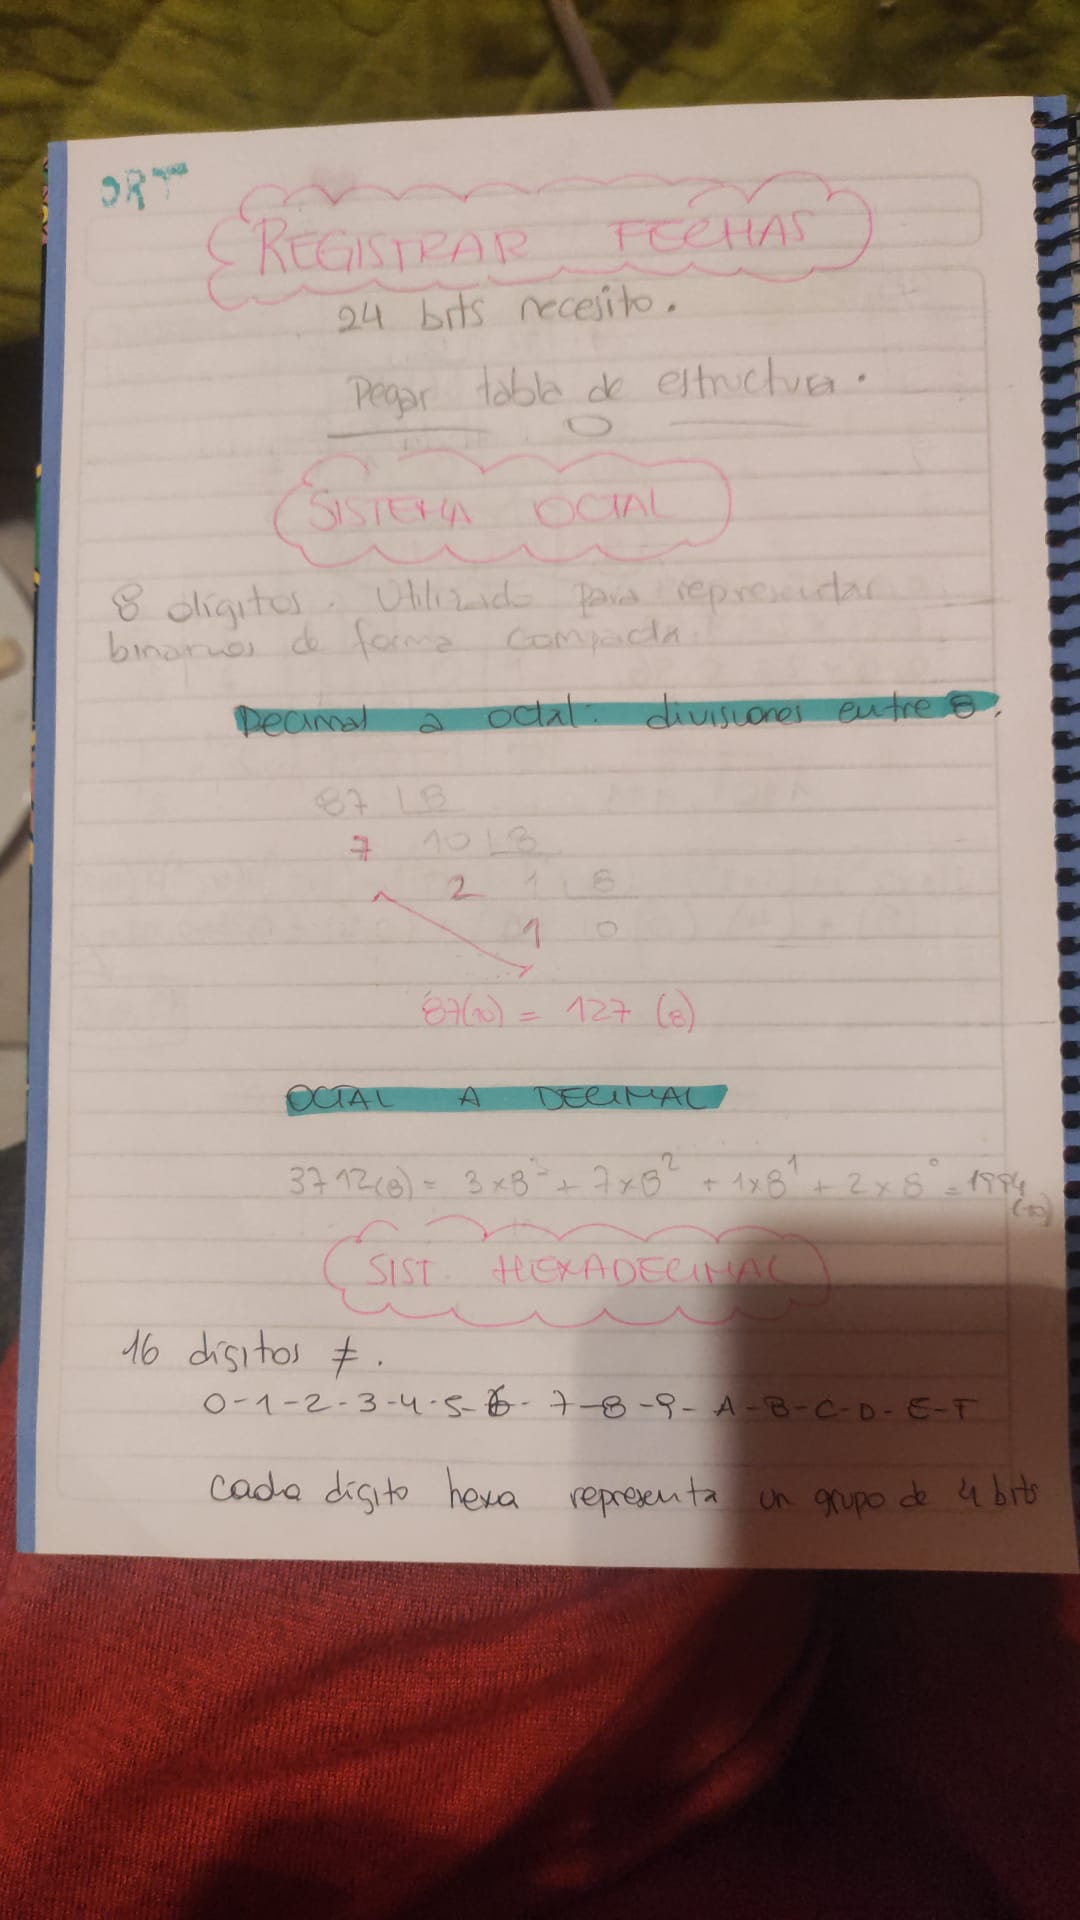 ORT
REGISTRAR FECHAS
24 bits necesito.
Pegar tabla de estructura.
SISTEMA OCTAL
8 dígitos. Utilizado para representar
binarios de forma compacta.
Decimal a octal: divisiones entre 8.
87 | 8
7 10 | 8
2 1 | 8
1 0
87(10) = 127 (8)
OCTAL A DECIMAL
3712(8) = 3x8³ + 7x8² + 1x8¹ + 2x8⁰ = 1994
(10)
SIST. HEXADECIMAL
16 dígitos ≠.
0-1-2-3-4-5-6-7-8-9-A-B-C-D-E-F
cada dígito hexa representa un grupo de 4 bits